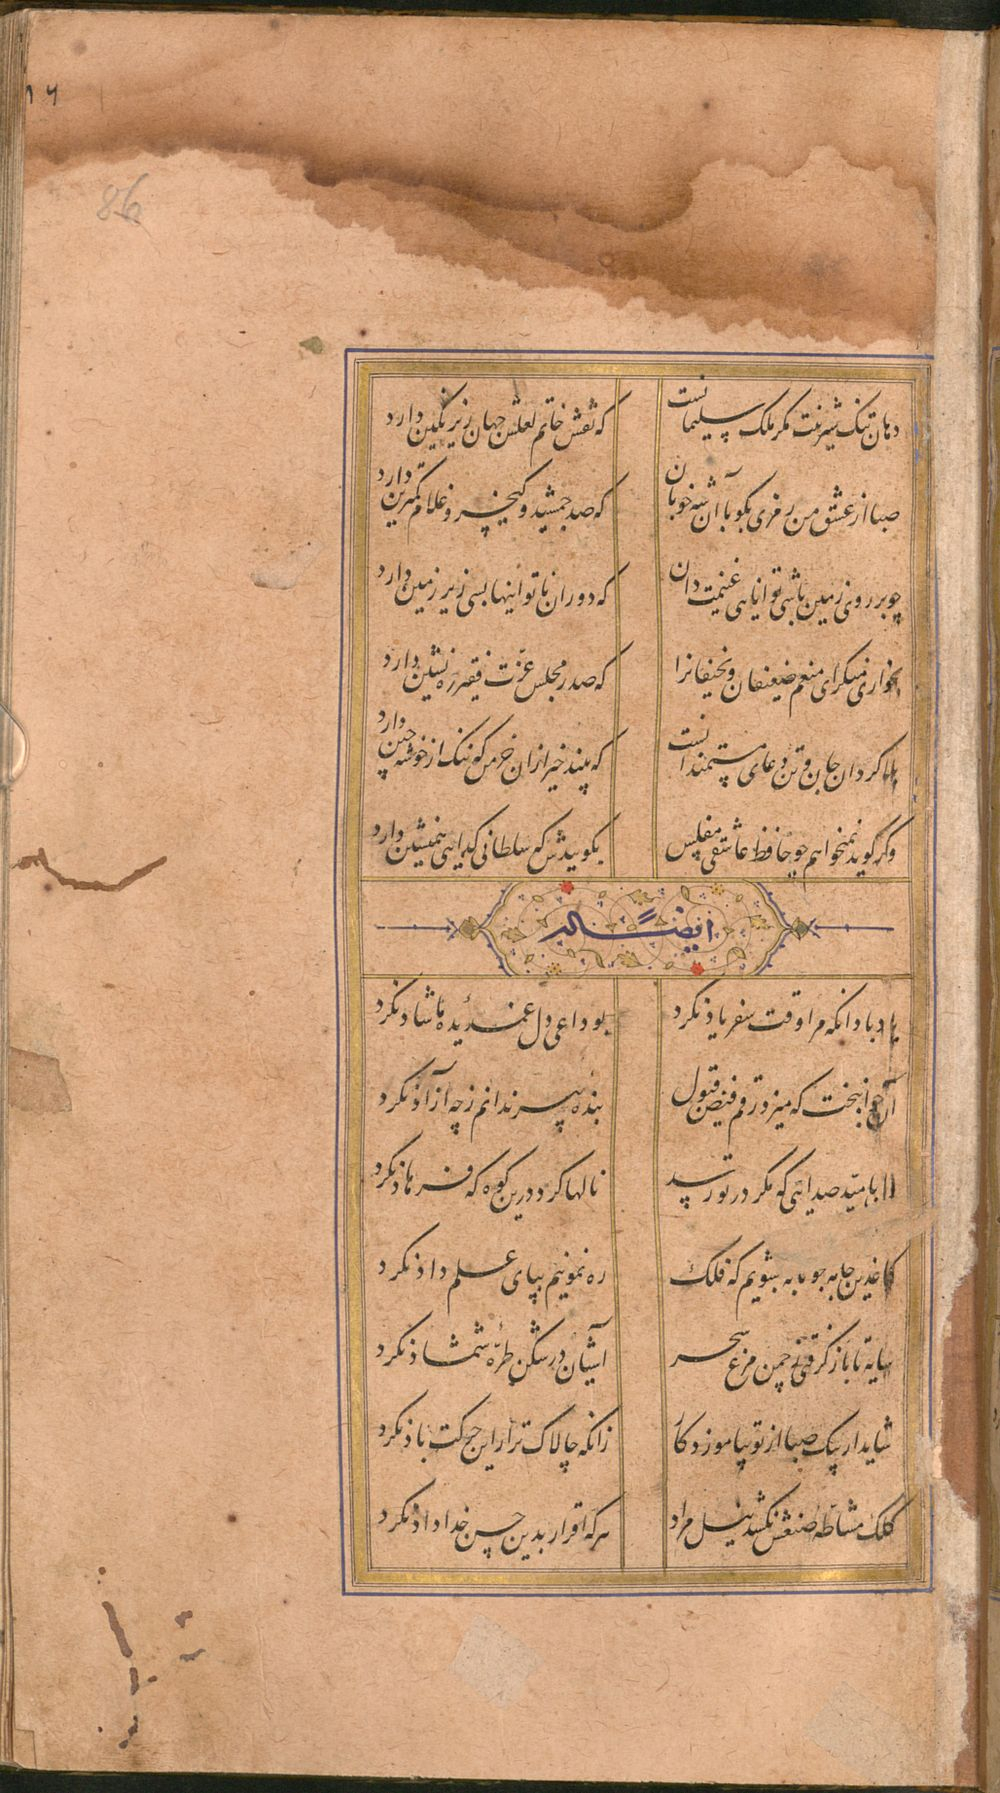 ۸۶
86
دهان تنک شیرینت مکر ملک سلیمانست که نقش خاتم لعلش جهان زیر نکین دارد
صبا از عشق من رمزی بکو با آن شه خوبان که صد جمشید و کیخسرو غلام کمترین دارد
چو بر روی زمین باشی توانایی غنیمت دان که دوران ناتوانیها بسی زیر زمین دارد
بخواری منکر ای منعم ضعیفان و نحیفانرا که صدر مجلس عزت فقیر ره نشین دارد
بلا کردان جان و تن دعای مستمندانست که بیند خیر از ان خرمن که ننک از خوشه چین دارد
وکر کوید نمیخواهم چو حافظ عاشقی مفلس بکوییدش که سلطانی کدایی همنشین دارد
ایضاً له
یاد باد انکه مرا وقت سفر یاد نکرد بوداعی دل غمدیدهٔ ما شاد نکرد
آن جوانبخت که میزد رقم فیض قبول بندهٔ پیر ندانم ز چه آزاد نکرد
دل بامید صدایی که مکر در تو رسد نالها کرد درین کوه که فرهاد نکرد
کاغذین جامه بخونابه بشویم که فلک ره نمونیم بپای علم داد نکرد
سایه تا باز کرفتی ز چمن مرغ سحر آشیان در شکن طرهٔ شمشاد نکرد
شاید ار پیک صبا از تو بیاموزد کار زانکه چالاک تر از این حرکت باد نکرد
کلک مشاطهٔ صنعش نکشد نیل مراد هر که اقرار بدین حسن خداداد نکرد